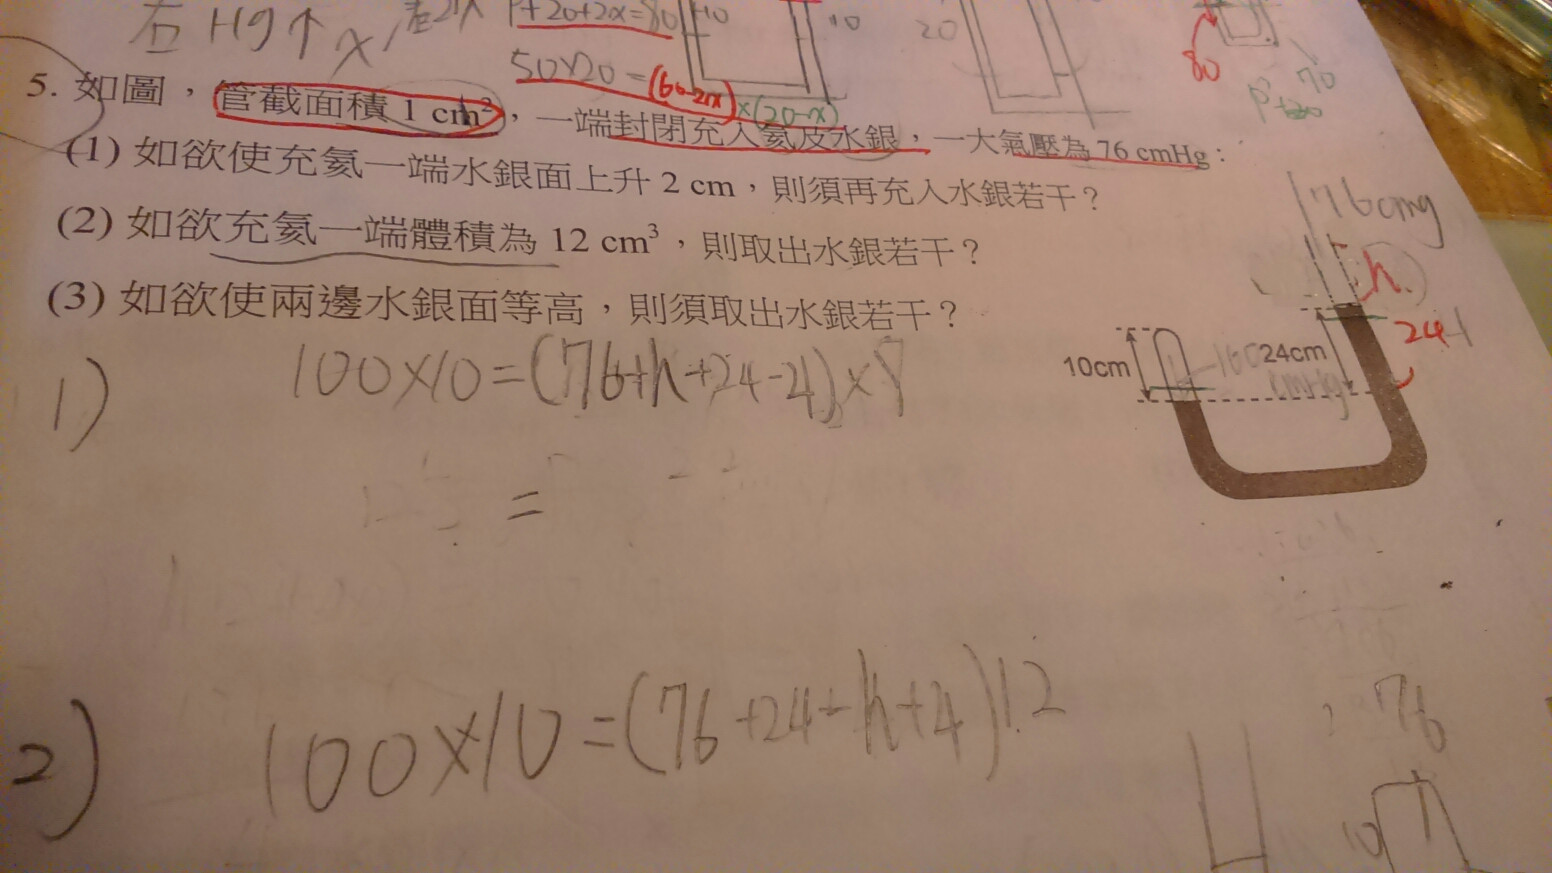 右 Hg↑ x,差2x
P+20+2x=80
10
10
20
80
70
50×20=(60-2x)×(20-x)
5. 如圖，管截面積 1 cm²，一端封閉充入氦及水銀，一大氣壓為 76 cmHg：
(1) 如欲使充氦一端水銀面上升 2 cm，則須再充入水銀若干？
(2) 如欲充氦一端體積為 12 cm³，則取出水銀若干？
(3) 如欲使兩邊水銀面等高，則須取出水銀若干？
h
10cm
24cm
1) 100×10=(76+h+24-4)×8
=
2) 100×10=(76+24-h+4)12
76
10